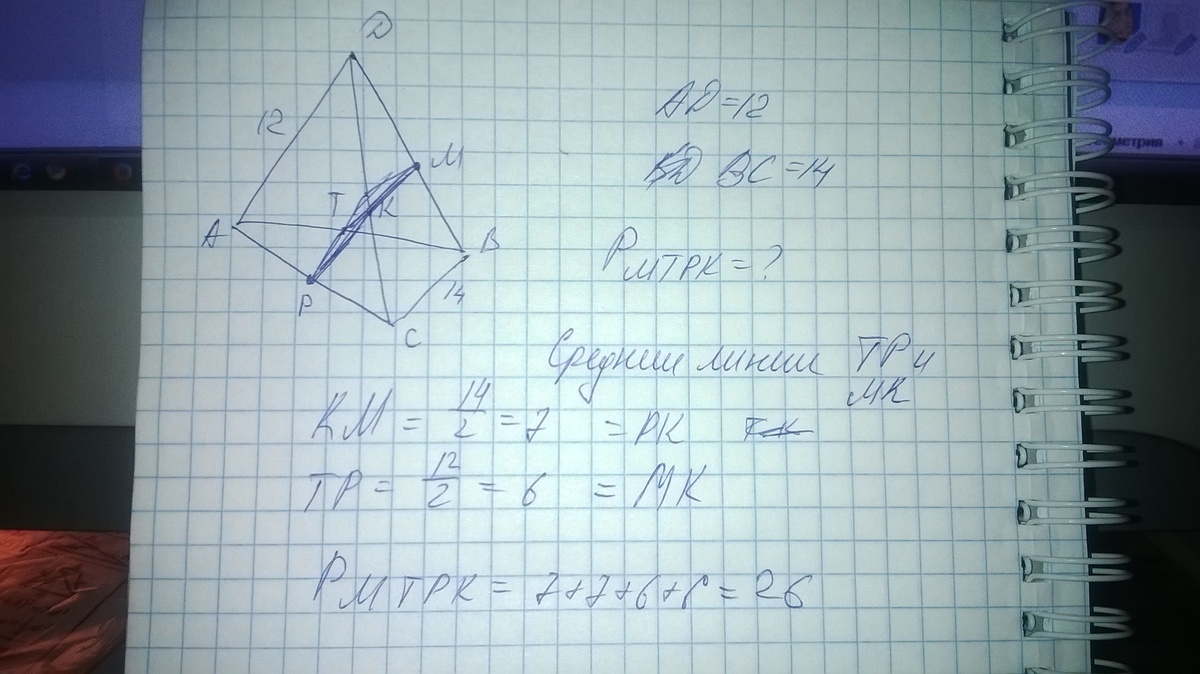 D
12
M
T
K
A
B
P
14
C
AD=12
BC=14
P MTPK=?
Средние линии TP и
MK
KM = 14/2 = 7 = PK
TP = 12/2 = 6 = MK
P MTPK = 7+7+6+6=26